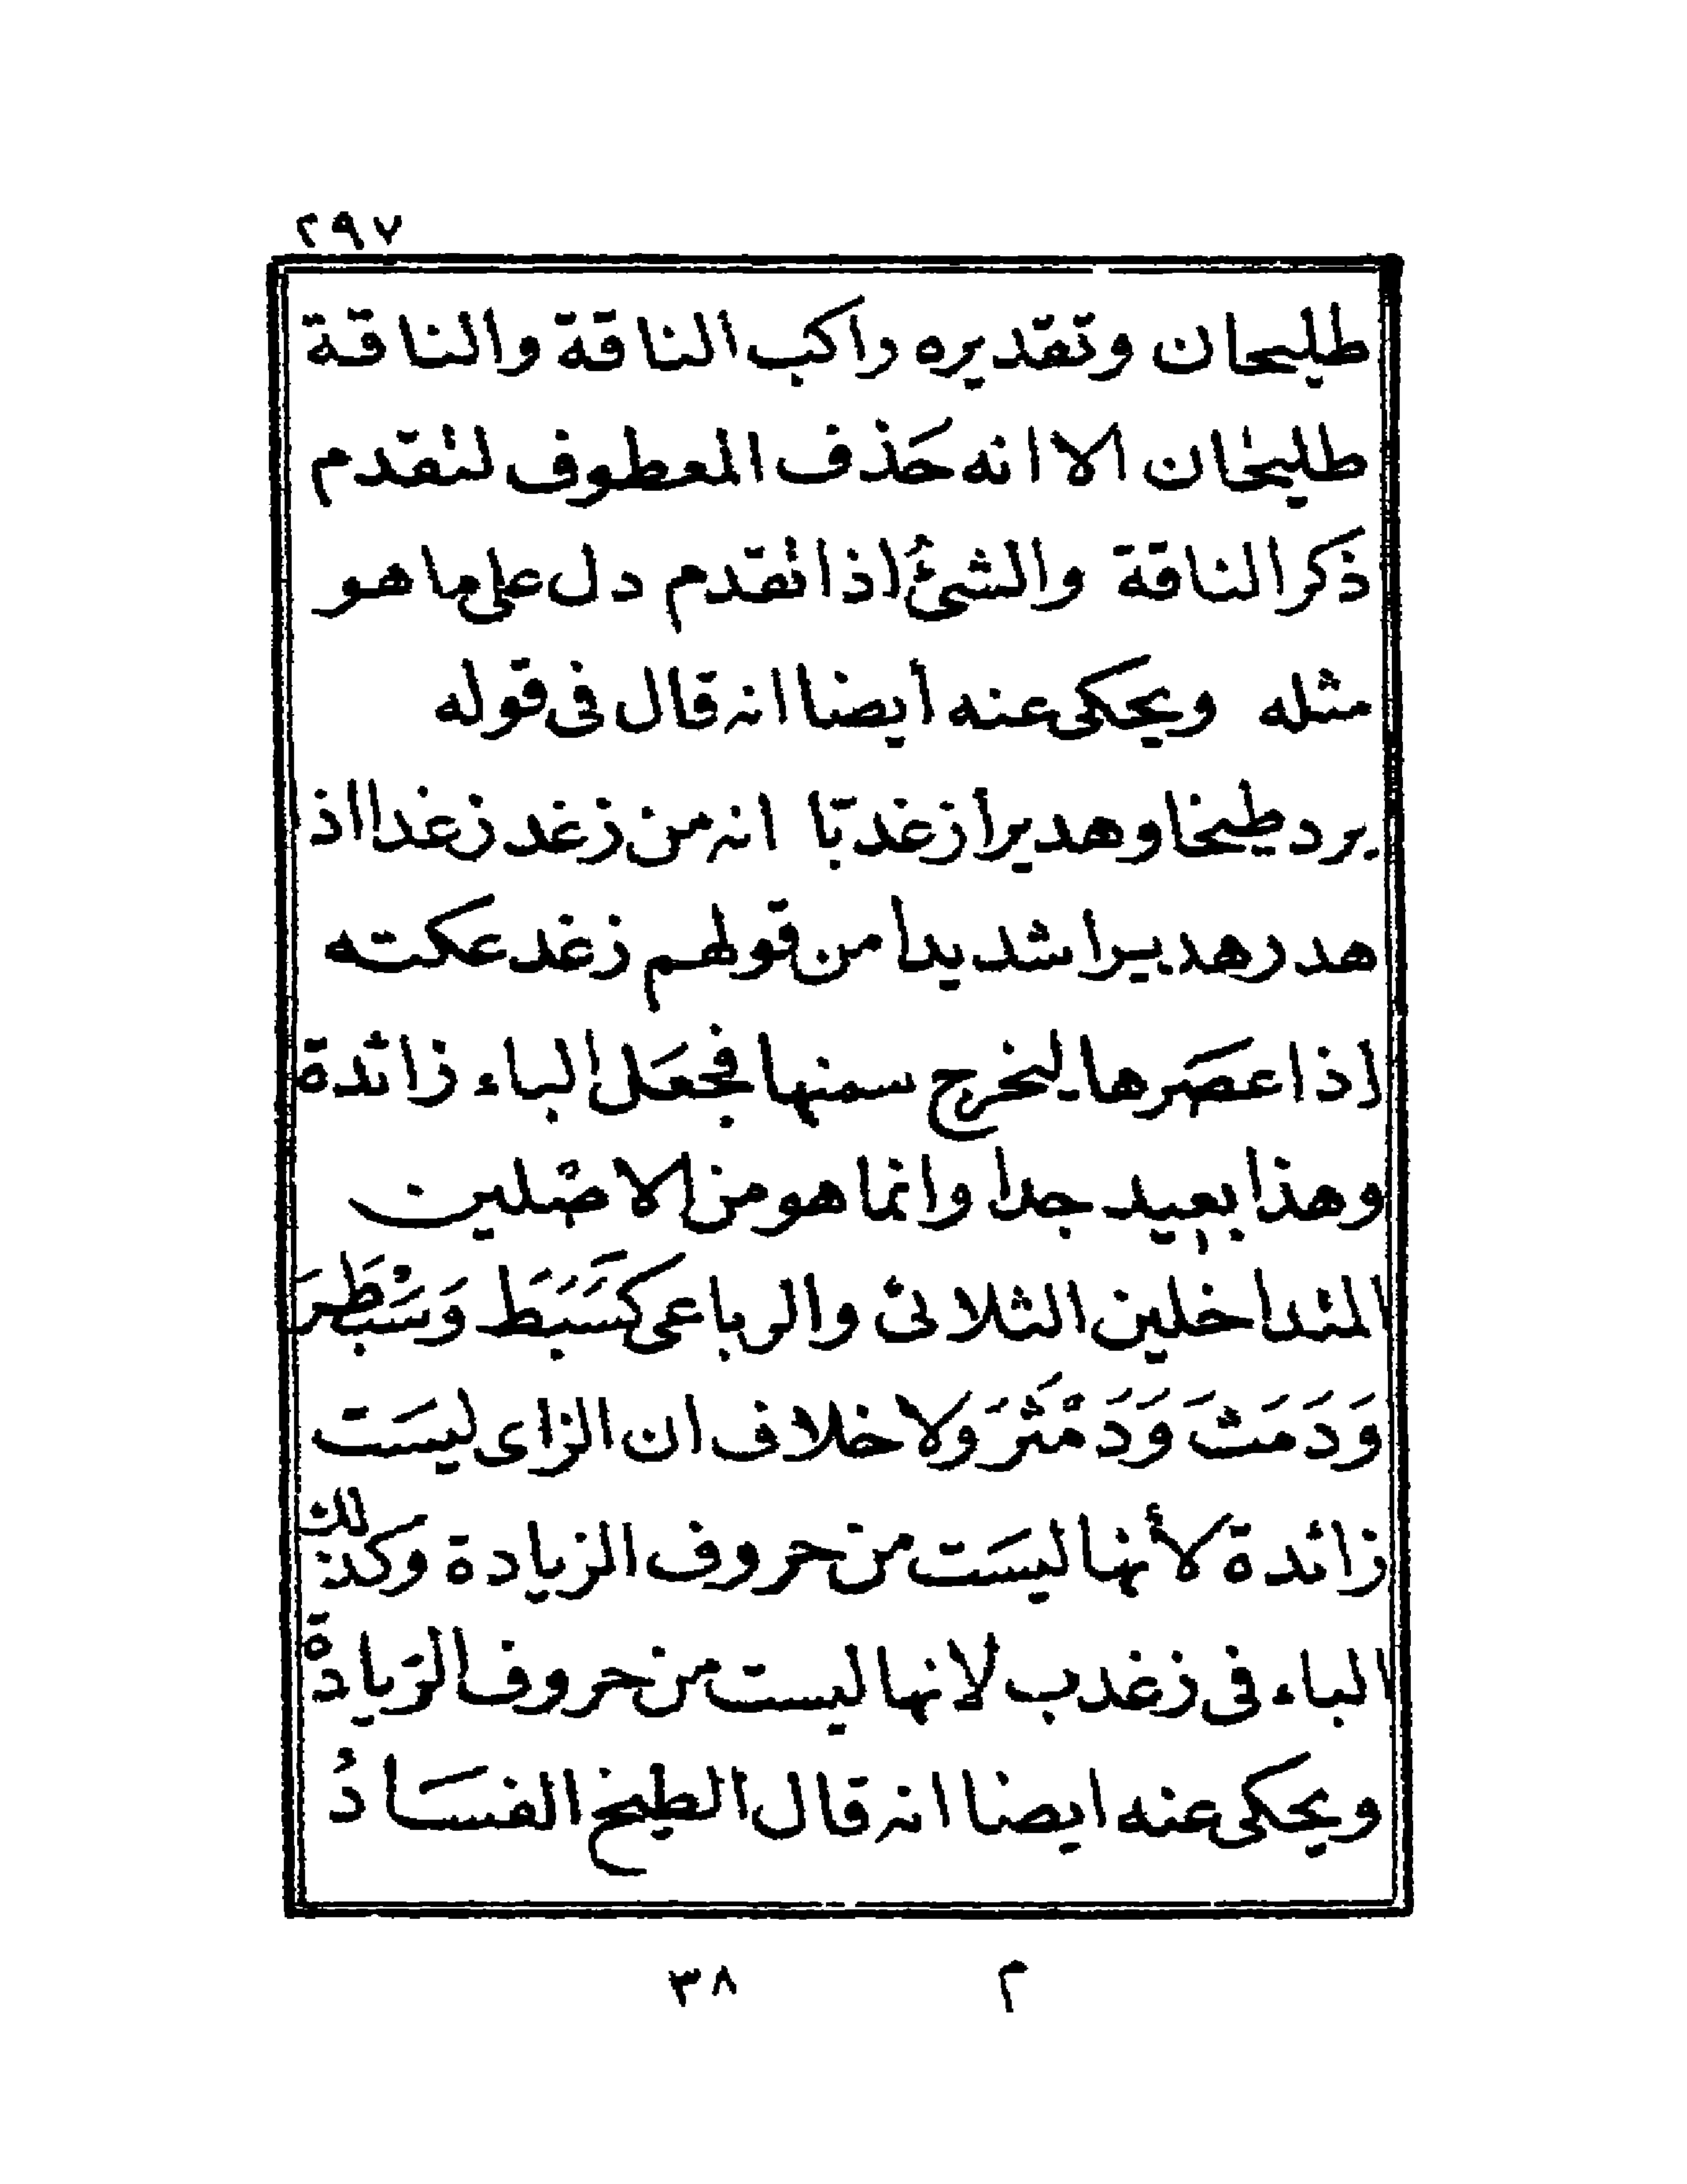 ٢٩٧
طليحان وتقديره راكب الناقة والناقة
طليحان الا انه حَذف المعطوف لتقدم
ذكر الناقة والشئُ اذا تقدم دل على ما هو
مثله ويحكى عنه أيضا انه قال فى قوله
يرد طيخا وهديرا زغدبّا انه من زغد زغدا اذ
هدر هديرا شديدا من قولهم زغد عكته
اذا عصَرها ليخرج سمنها فجعَل الباء زائدة
وهذا بعيد جدا وانما هو من الاصْلين
المتداخلين الثلاثى والرباعى كسَبَط وَسَبْطَرَ
وَدَمَثَ وَدَمْثَرَ وَلا خلاف ان الزاى ليسَت
زائدة لأنها ليسَت من حروف الزيادة وكذلك
الباء فى زغدب لانها ليست من حروف الزيادة
ويحكى عنه ايضا انه قال الطيخ الفسَادُ
م ٣٨